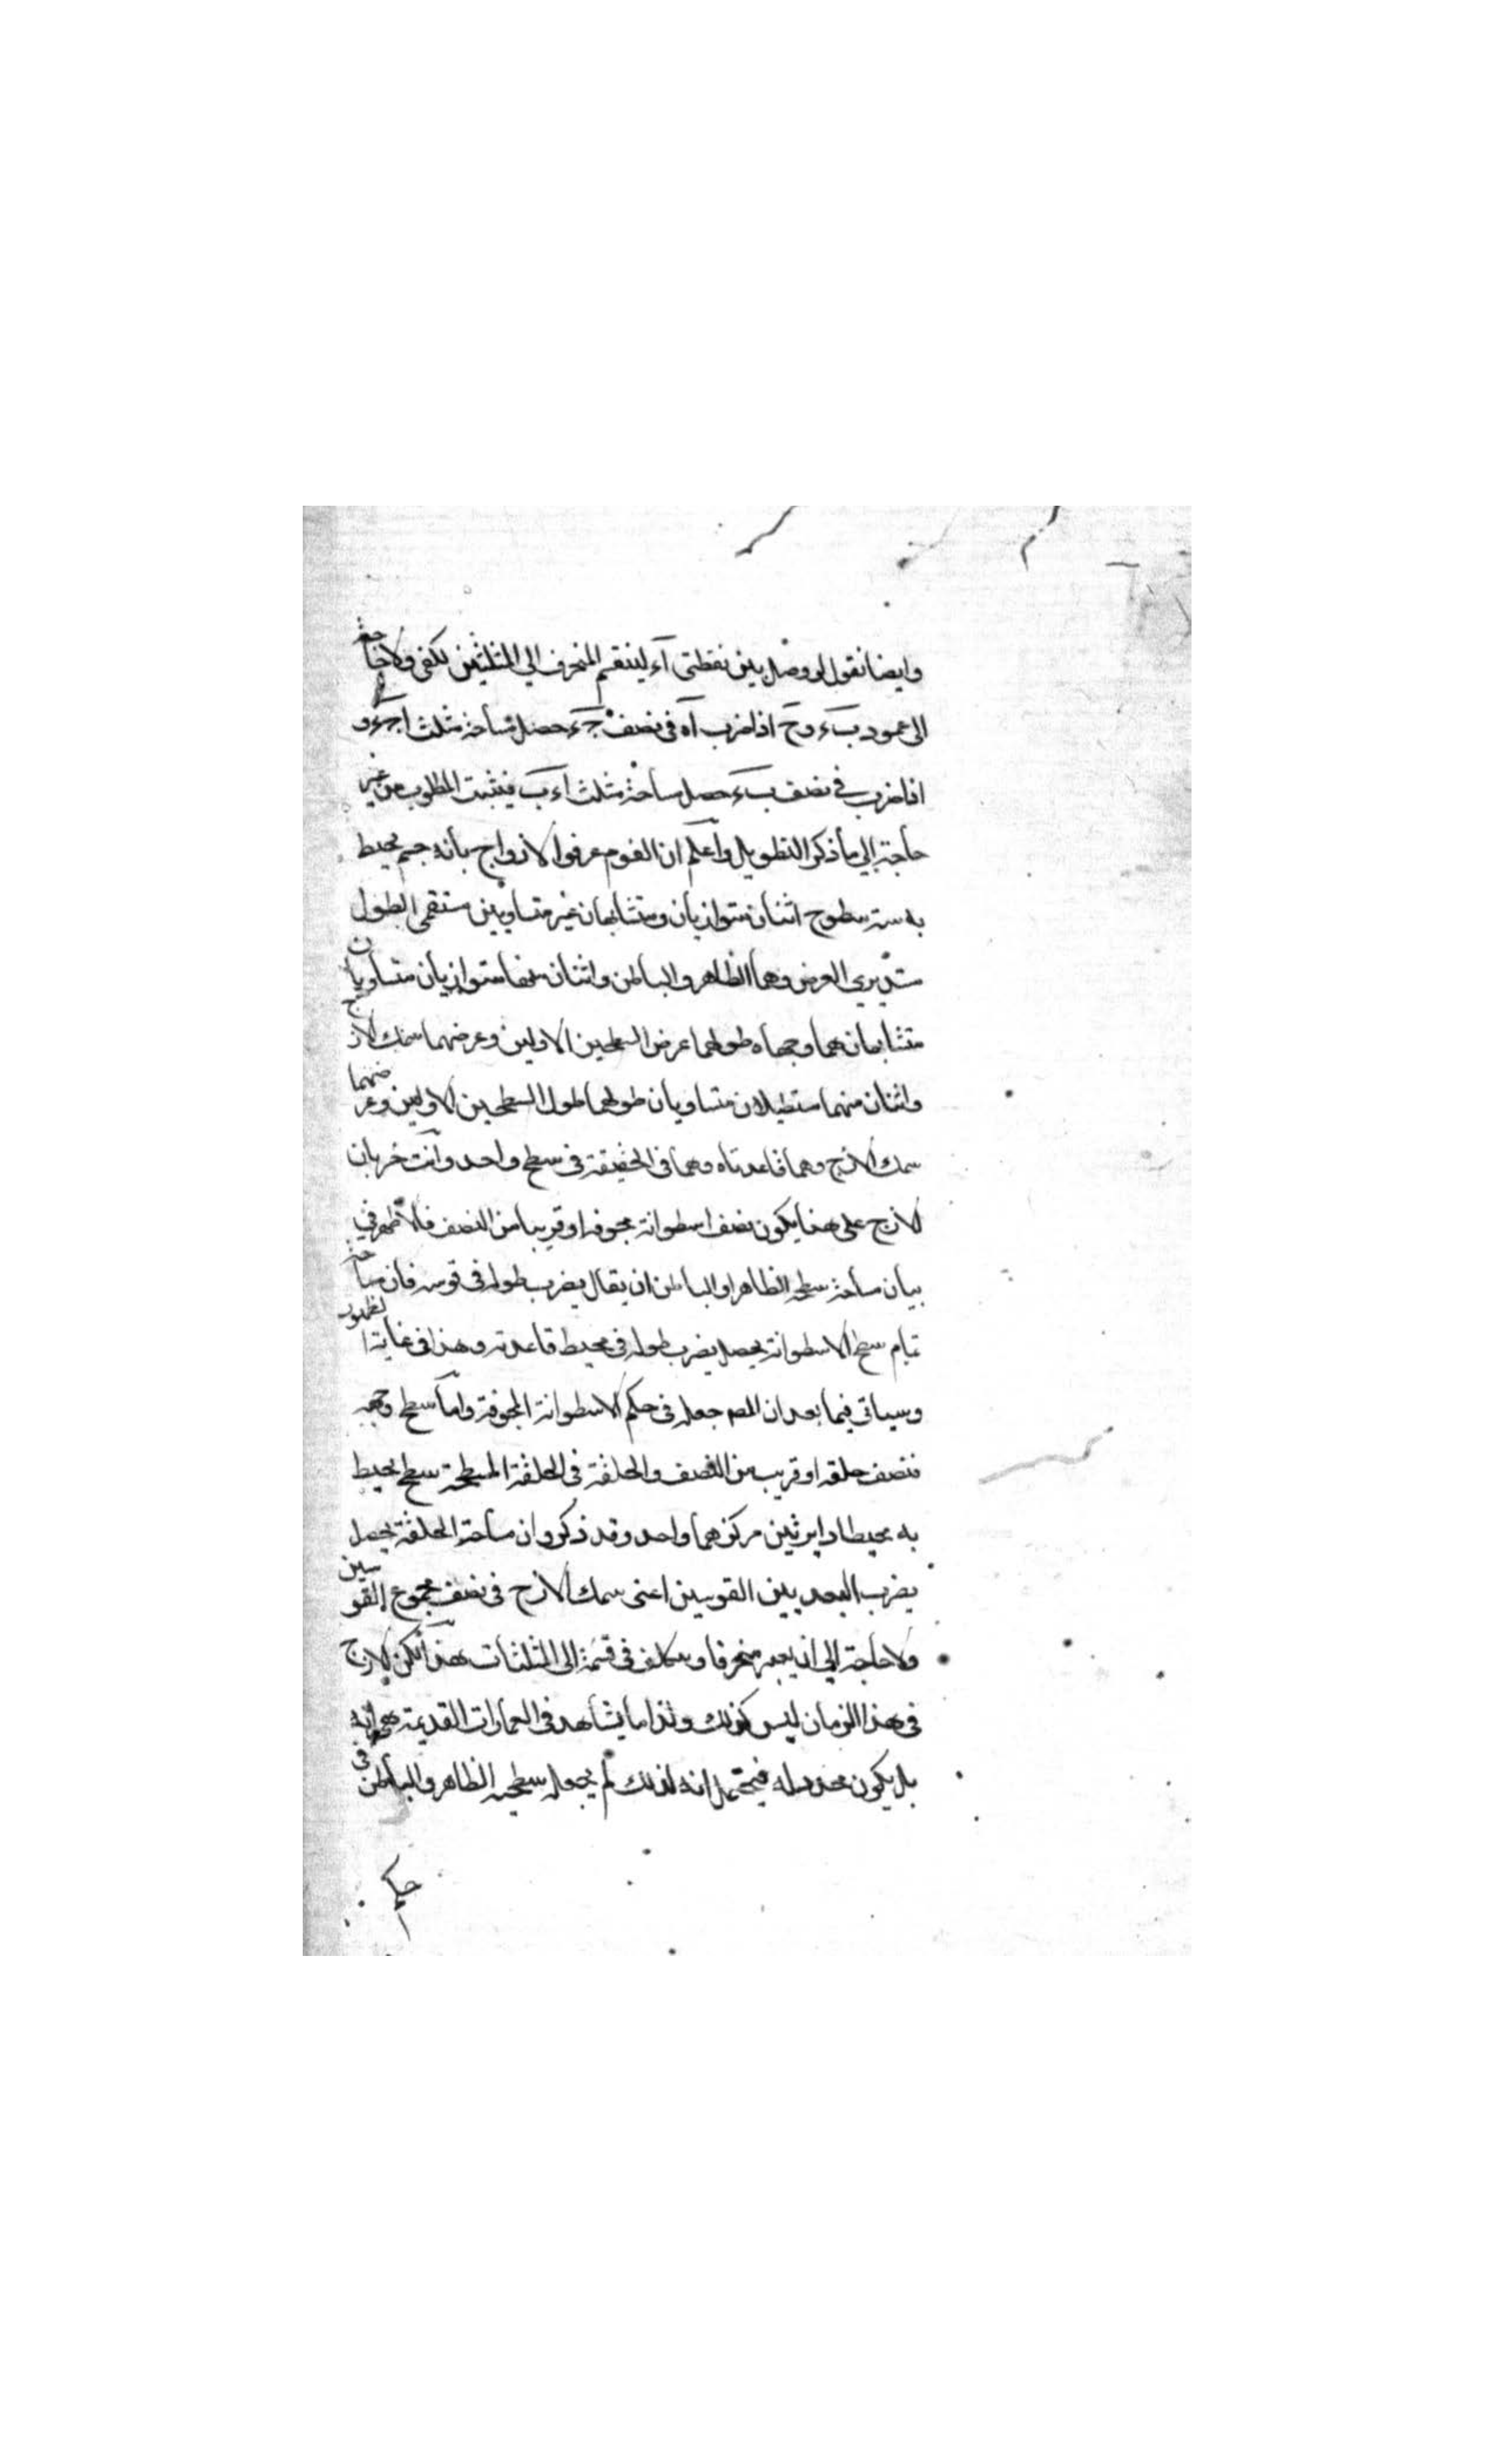 وايضا نقول لو وصل بين نقطتي آء لينقسم المنحرف الي المثلثين لكفى ولا حاجة
الى عمود بء وح اذا ضرب آه في نصف جء حصل مساحة مثلث اجء و
اذا ضرب في نصف بء حصل مساحة مثلث اءب فيثبت المطلوب من غير
حاجة الي ما ذكر التطويل واعلم ان القوم عرفوا الازواج بانه جسم يحيط
به ستة سطوح اثنان متوازيان ومتشابهان غير متساويين مستقيمي الطول
مستديري العرض وهما الظاهر والباطن واثنان منها متوازيان متساويان
متشابهان هما وجهاه طولهما عرض السطحين الاولين وعرضهما سمك الازج
واثنان منهما مستطيلان متساويان طولهما طول السطحين الاولين وعرضهما
سمك الازج وهما قاعدتاه وهما في الحقيقة في سطح واحد وانت خبر بان
الازج على هذا يكون نصف اسطوانة مجوفة او قريبا من النصف فالاظهر في
بيان مساحة سطحه الظاهر او الباطن ان يقال يضرب طوله في قوسه فان مساحة
تمام سطح الاسطوانة يحصل بضرب طوله في محيط قاعدته وهذا في غاية الظهور
وسياتي فيما بعد ان المص جعله في حكم الاسطوانة المجوفة واما سطح وجهه
فنصف حلقة او قريب من النصف والحلقة في الحلقة المسطحة سطح يحيط
به محيطا دايرتين مركزهما واحد وقد ذكروا ان مساحة الحلقة يحصل
بضرب البعد بين القوسين اعنى سمك الازج في نصف مجموع القوسين
ولا حاجة الي ان يعبر منحرفا ويتكلف في قسمته الى المثلثات هذا لكن الازج
في هذا الزمان ليس كذلك وكذا ما يشاهد في العمارات القديمة
بل يكون محدد له فيحتمل انه لذلك لم يجعل سطحيه الظاهر والباطن في
حكم